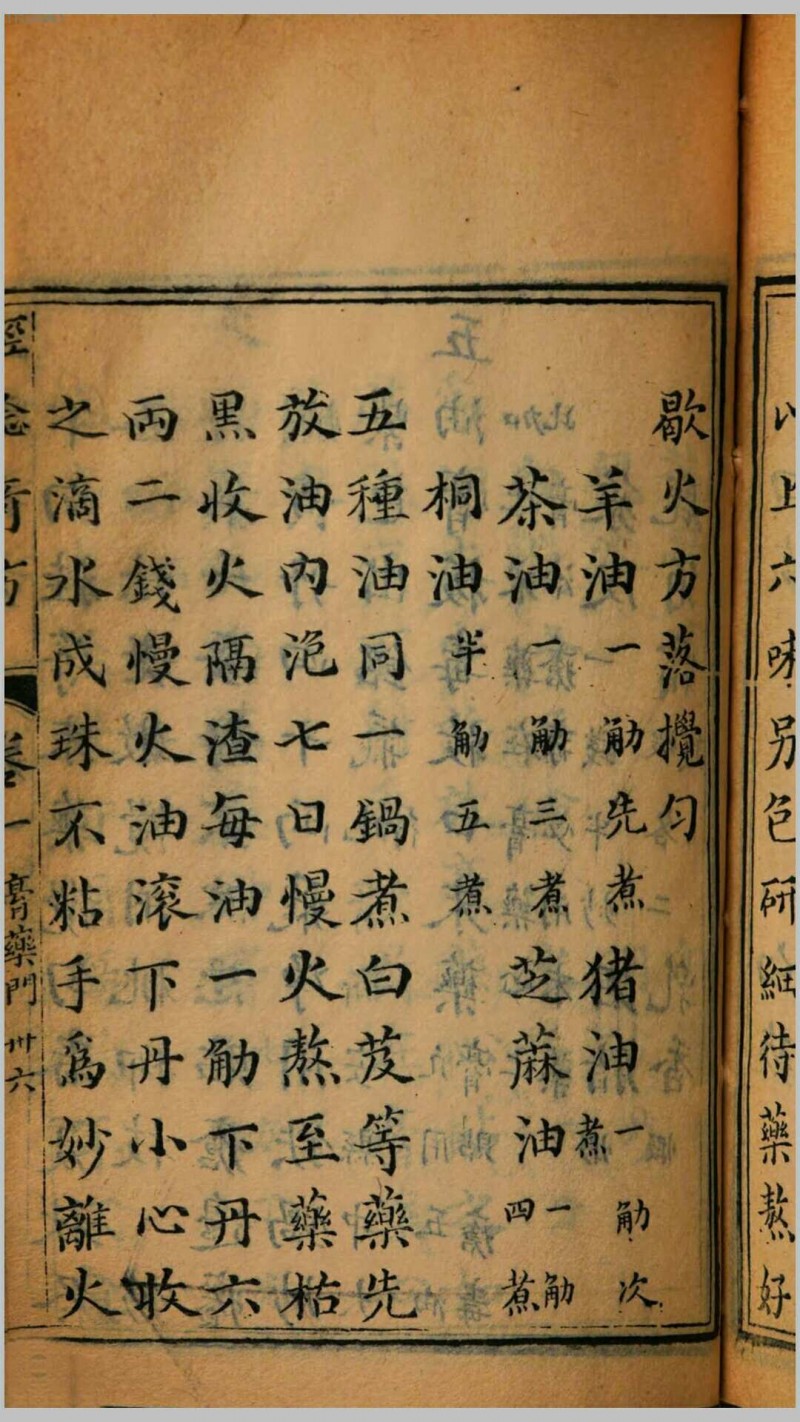 以上六味另包研細待藥熬好
歇火方落攪匀
羊油一觔先煮 猪油一觔次煮
茶油一觔三煮 芝蔴油一觔四煮
桐油半觔五煮
五種油同一鍋煮白芨等藥先
放油內浸七日慢火熬至藥枯
黑收火隔渣每油一觔下丹六
両二錢慢火油滚下丹小心收
之滴水成珠不粘手爲妙離火
經驗奇方 卷一 膏藥門 卅六